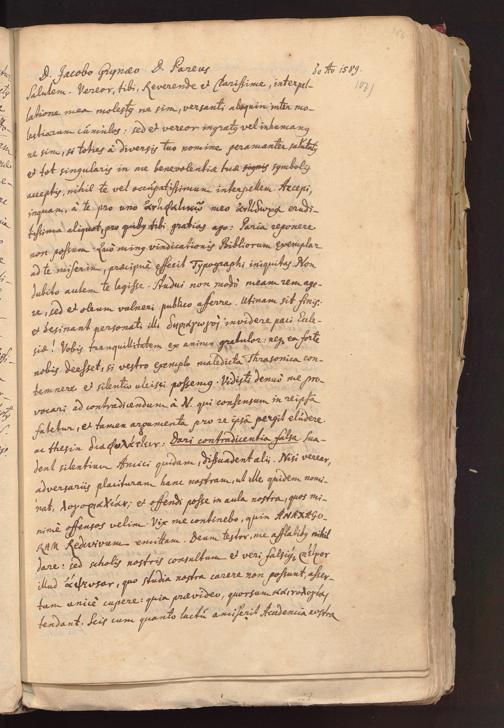 D. Jacobo Grynæo D. Pareus
30 Ao 1589.
Salutem. Vereor, tibi, Reverende et Clarissime, interpel-
latione mea molesty ne sim, versanti alioquin inter mo-
lestiarum cumulos: sed et vereor ingraty vel inhumany
ne sim, si toties à diversis tuo nomine peramanter salutaty
et tot singularis in me benevolentiæ tuæ symbolis
acceptis, nihil te vel occupatissimum interpellem Accepi,
inquam, à te pro uno meo erudi-
tissima aliquot, pro quiby tibi gratias ago: Paria reponere
non possum Quo miny vindicationis Bibliorum exemplar
ad te miserim, præcipuè effecit Typographi iniquitas Non
dubito autem te legisse. Studui non modò meam rem age-
re, sed et oleum vulneri publico afferre. Utinam sit finis:
et desinant personati illi invidere paci Eccle-
siæ! Vobis tranquillitatem ex animo gratulor: neq, ea forte
nobis deesset, si vestro exemplo maledicta Thrasonica con-
temnere et silentio ulcisci possemy. Vidisti denuò me pro-
vocari ad contradicendum à N. qui consensum in reipsa
fatetur, et tamen argumenta pro re ipsâ pergit elidere.
ac thesin : Dari contradicentia falsa sua-
dent silentium Amici quidam, dissuadent alii. Nisi verear,
adversariis placituram hanc nostram, ut ille quidem nomi-
nat, λογομαχίαν; et offendi posse in aula nostra, quos mi-
nimè offensos velim. Vix me continebo, quin ANAXAGO-
RAM Redivivum emittam. Deum testor, me affectiby nihil
dare: sed scholis nostris consultum et veri falsiq,
illud , quo studia nostra carere non possunt, asser-
tum unicè cupere: quia prævideo, quorsum
tendant. Scis cum quanto luctu amiserit Academia nostra